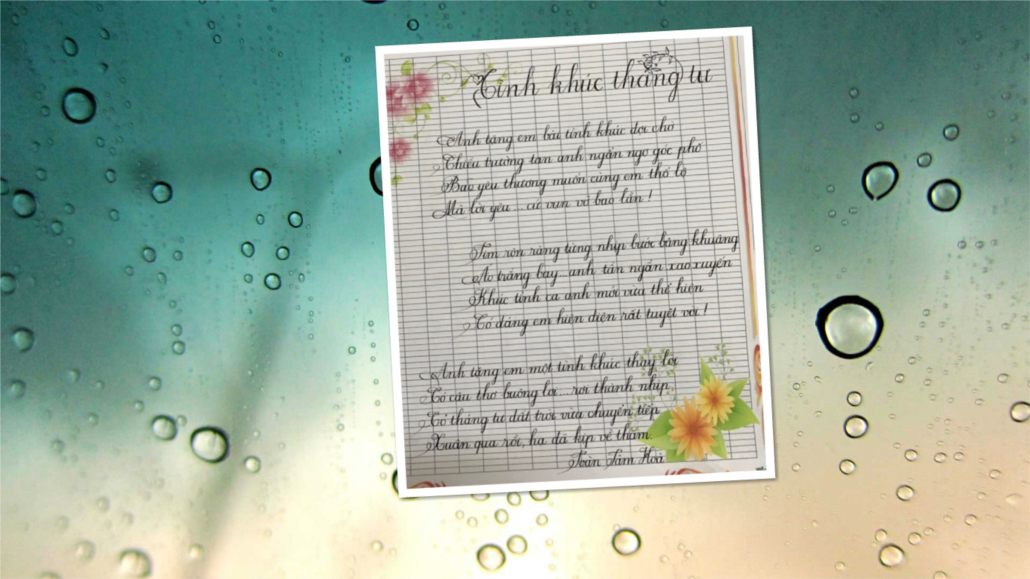 Tình khúc tháng tư
Anh tặng em bài tình khúc đợi chờ
Chiều trường tan anh ngẩn ngơ góc phố
Bao yêu thương muốn cùng em thổ lộ
Mà lời yêu ... cứ vụn vỡ bao lần !
Tim rộn ràng từng nhịp bước bâng khuâng
Áo trắng bay anh tần ngần xao xuyến
Khúc tình ca anh mới vừa thể hiện
Có dáng em hiện diện rất tuyệt vời !
Anh tặng em một tình khúc thay lời
Có câu thơ buông lơi ... rơi thành nhịp
Có tháng tư đất trời vừa chuyển tiếp
Xuân qua rồi, hạ đã kịp về thăm.
Toàn Tâm Hoà